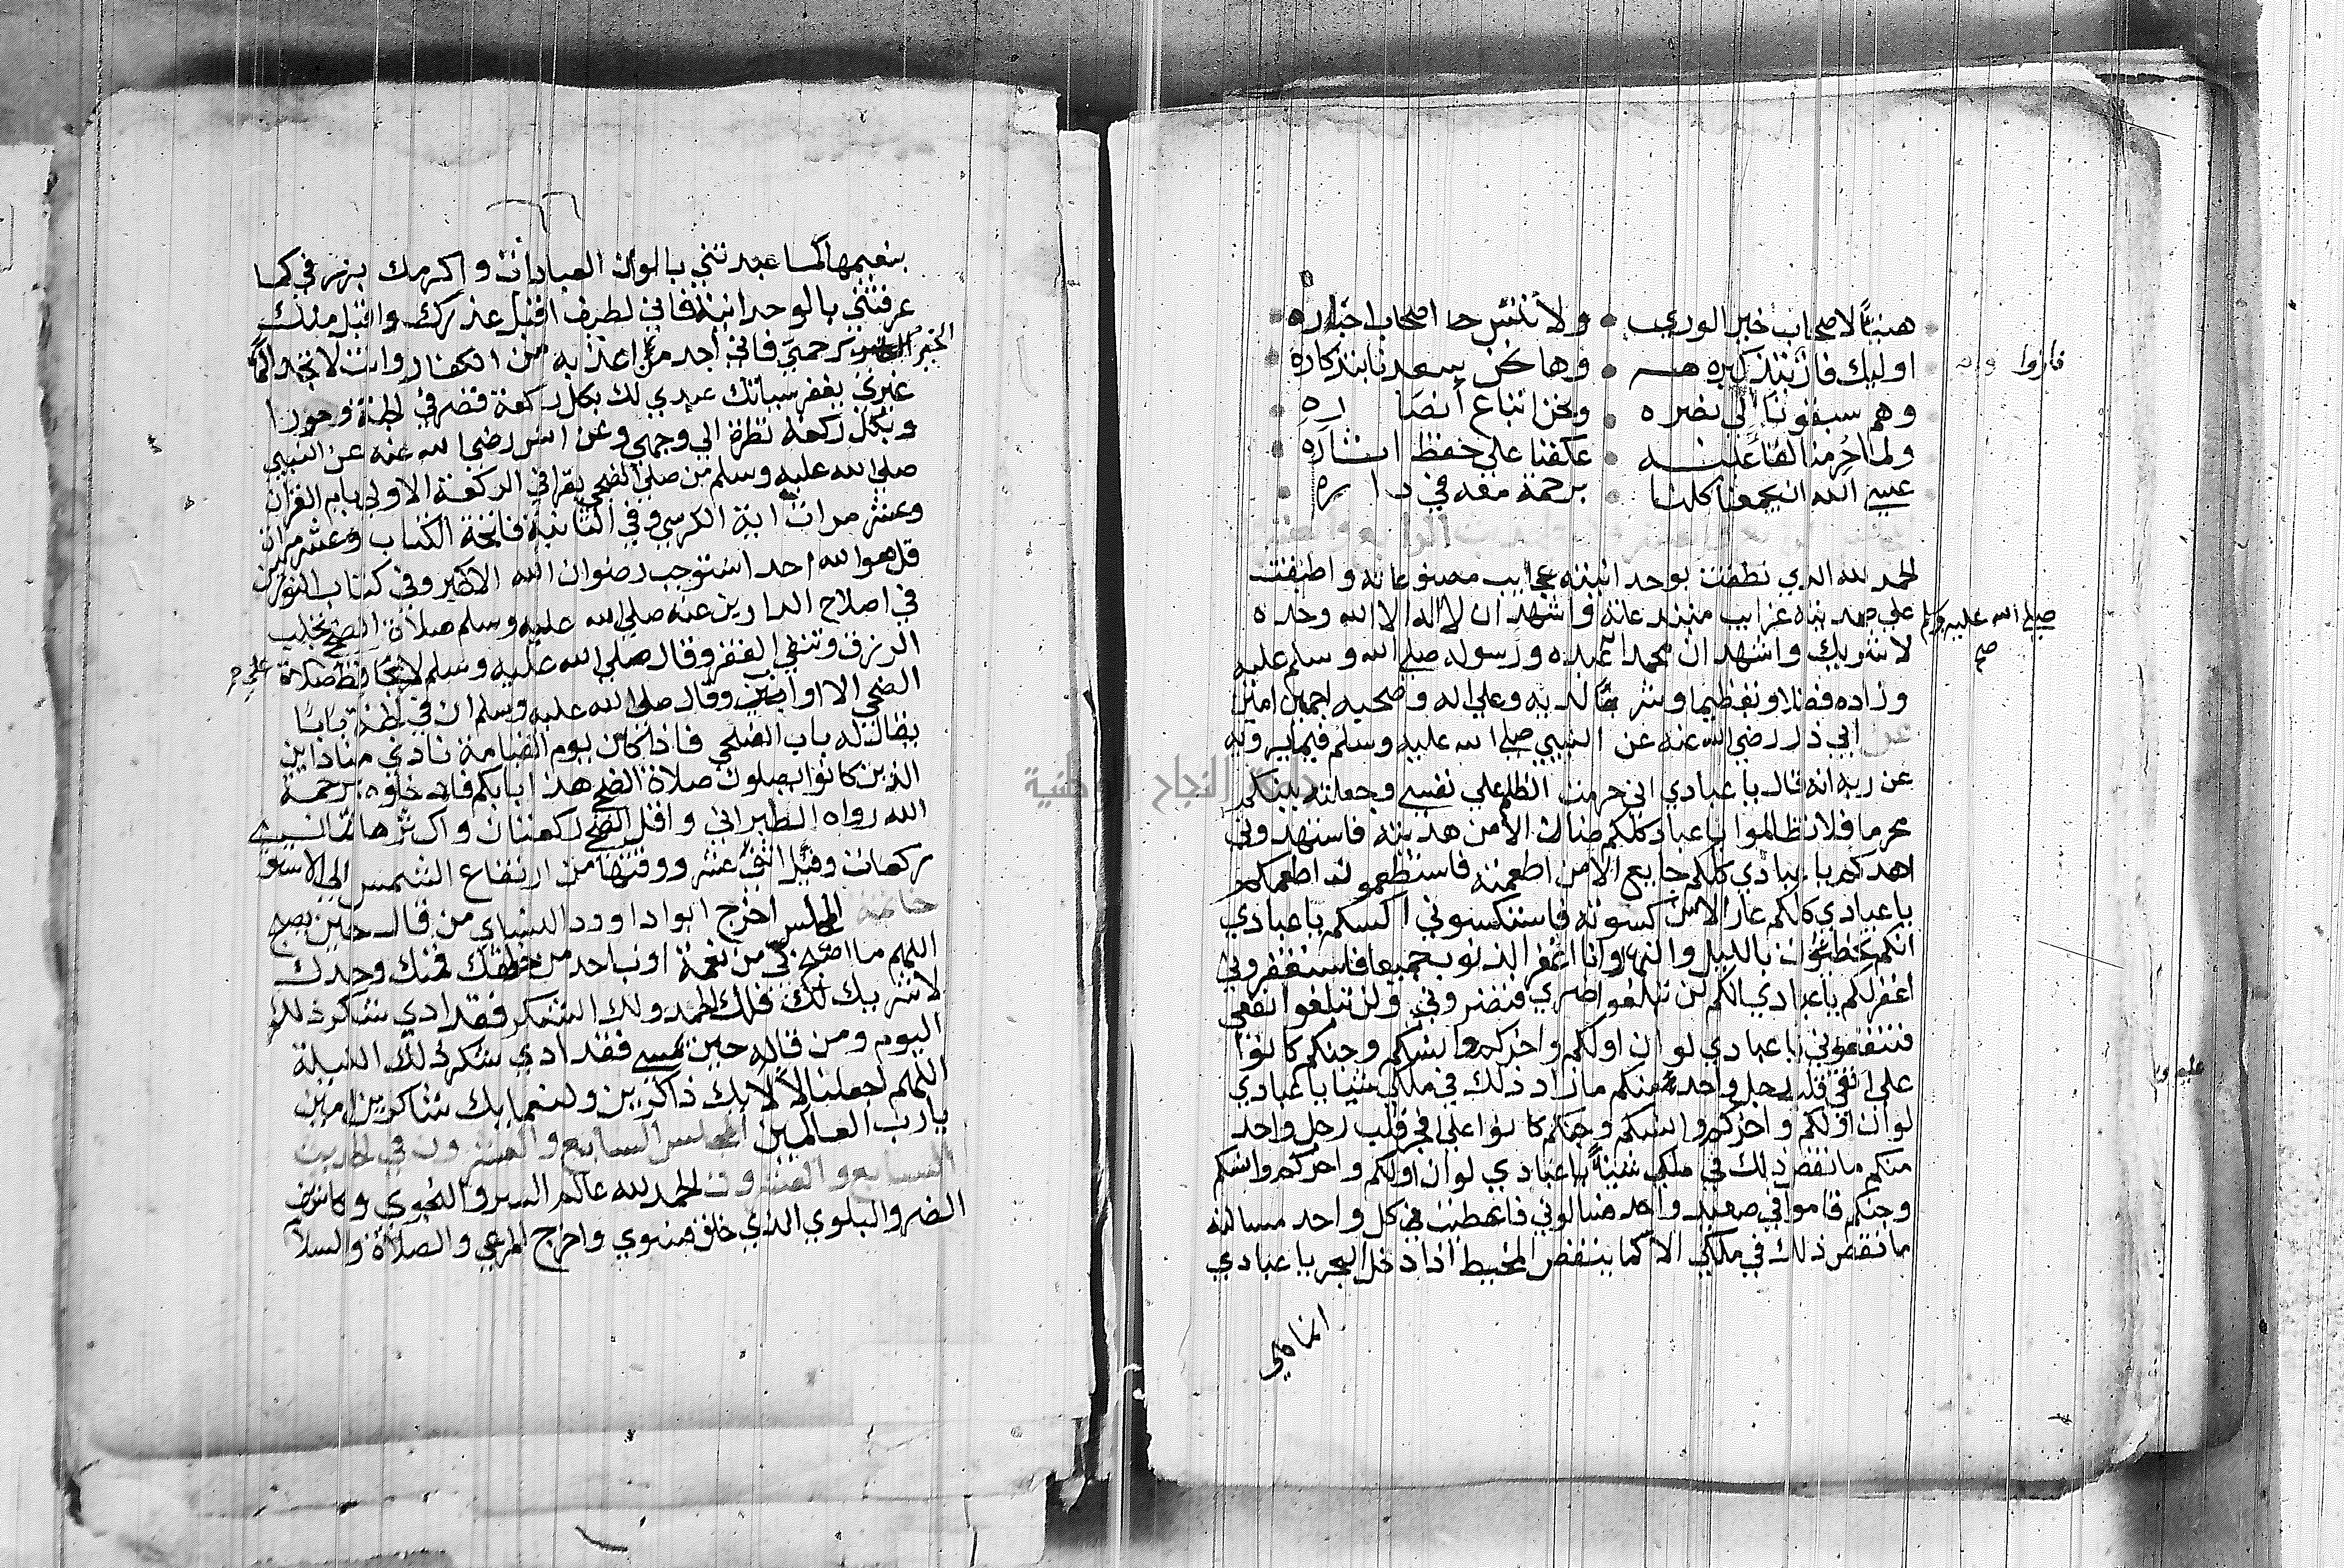 هنيئا لاصحاب خير الوري ولا تنس حا اصحاب اخباره
اوليك فازوا بتذكيره وها نحن يسعدنا بتذكاره
وهم سبقونا الي نصره ونحن اتباع أنصاره
ولما حرمنا لقا عينه عكفنا علي حفظ اثاره
عسي الله ان يجمعنا كلنا برحمة معه في داره
الرابع والعشرون
الحمد لله الذي نطقت بوحدانيته عجايب مصنوعاته واطبقت
علي صمديته غرايب مبتدعاته واشهد ان لا اله الا الله وحده
لا شريك واشهد ان محمدا عبده ورسوله صلي الله وسلم عليه
وزاده فضلا وتعظيما وشرفا لديه وعلي اله وصحبه اجمعين امين
عن ابي ذر رضي الله عنه عن النبي صلي الله عليه وسلم فيما يرويه
عن ربه انه قال يا عبادي اني حرمت الظلم علي نفسي وجعلته بينكم
محرما فلا تظالموا يا عباد كلكم ضال الا من هديته فاستهدوني
اهدكم يا عبادي كلكم جايع الا من اطعمته فاستطعموني اطعمكم
يا عبادي كلكم عار الا من كسوته فاستكسوني اكسكم يا عبادي
انكم تخطئون بالليل والنهار وانا اغفر الذنوب جميعا فاستغفروني
اغفر لكم يا عبادي انكم لن تبلغوا ضري فتضروني ولن تبلغوا نفعي
فتنفعوني يا عبادي لو ان اولكم واخركم وانسكم وجنكم كانوا
علي اتقي قلب رجل واحد منكم ما زاد ذلك في ملكي شيا يا عبادي
لو ان اولكم واخركم وانسكم وجنكم كانوا علي افجر قلب رجل واحد
منكم ما نقص ذلك في ملكي شيئا يا عبادي لو ان اولكم واخركم وانسكم
وجنكم قاموا في صعيد واحد فسالوني فاعطيت كل واحد مسالته
ما نقص ذلك في ملكي الا كما ينقص المخيط اذا دخل البحر يا عبادي
فازوا
صلي الله عليه وسلم
صح
بنعيمها كما عبدتني بالوان العبادات واكرمك بزفي كما
عرفتني بالوحدانية فاني لطيف اقبل عذرك واقبل منك
الخير برحمتي فاني أجد من اعذبه من الكفار وانت لا تجد الها
غيري يغفر سيئاتك عبدي لك بكل ركعة قصر في الجنة وحورا
وبكل ركعة نظرة الي وجهي وعن انس رضي الله عنه عن النبي
صلي الله عليه وسلم من صلي الضحي يقرا في الركعة الاولي بام القران
وعشر مرات اية الكرسي وفي الثانية فاتحة الكتاب وعشر مرات
قل هو الله احد استوجب رضوان الله الاكبر وفي كتاب النورين
في اصلاح الدارين عنه صلي الله عليه وسلم صلاة الضحي تجلب
الرزق وتنفي الفقر وقال صلي الله عليه وسلم لا يحافظ علي صلاة
الضحي الا اوابين وقال صلي الله عليه وسلم ان في الجنة بابا
يقال له باب الضحي فاذا كان يوم القيامة نادي مناد اين
الذين كانوا يصلون صلاة الضحي هذا بابكم فادخلوه برحمة
الله رواه الطبراني واقل الضحي ركعتان واكثرها ثمانية
ركعات وقيل اثني عشر ووقتها من ارتفاع الشمس الي الاستوا
خاتمة المجلس اخرج ابوا داوود النساي من قال حين يصبح
اللهم ما اصبح بي من نعمة او باحد من خلقك فمنك وحدك
لا شريك لك فلك الحمد ولك الشكر فقد ادي شكر ذلك
اليوم ومن قاله حين يمسي فقد ادي شكر ذلك الليلة
اللهم اجعلنا لالايك ذاكرين ولنعمايك شاكرين امين
يا رب العالمين المجلس السابع والعشرون في الحديث
السابع والعشرون الحمد لله عالم السر والنجوي وكاشف
الضر والبلوي الذي خلق فسوي واخرج المرعي والصلاة والسلا
جامعة النجاح الوطنية